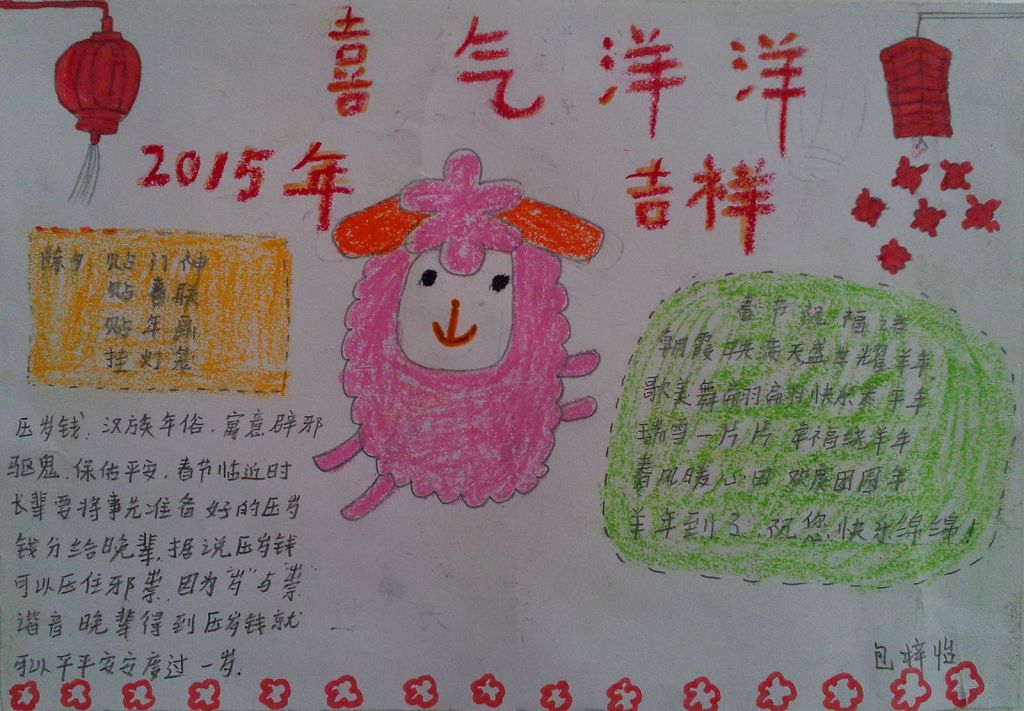 喜气洋洋
2015年 吉祥
除夕 贴门神
贴春联
贴年画
挂灯笼
压岁钱,汉族年俗.寓意辟邪
驱鬼.保佑平安.春节临近时
长辈要将事先准备好的压岁
钱分给晚辈.据说压岁钱
可以压住邪祟.因为"岁"与"祟"
谐音.晚辈得到压岁钱就
可以平平安安度过一岁.
春节祝福语
朝霞映满天盛世耀羊年
歌美舞翩翩 快乐 羊年
瑞雪一片片 幸福绕羊年
春风暖心田 欢度团圆年
羊年到了.祝您快乐绵绵!
包梓怡